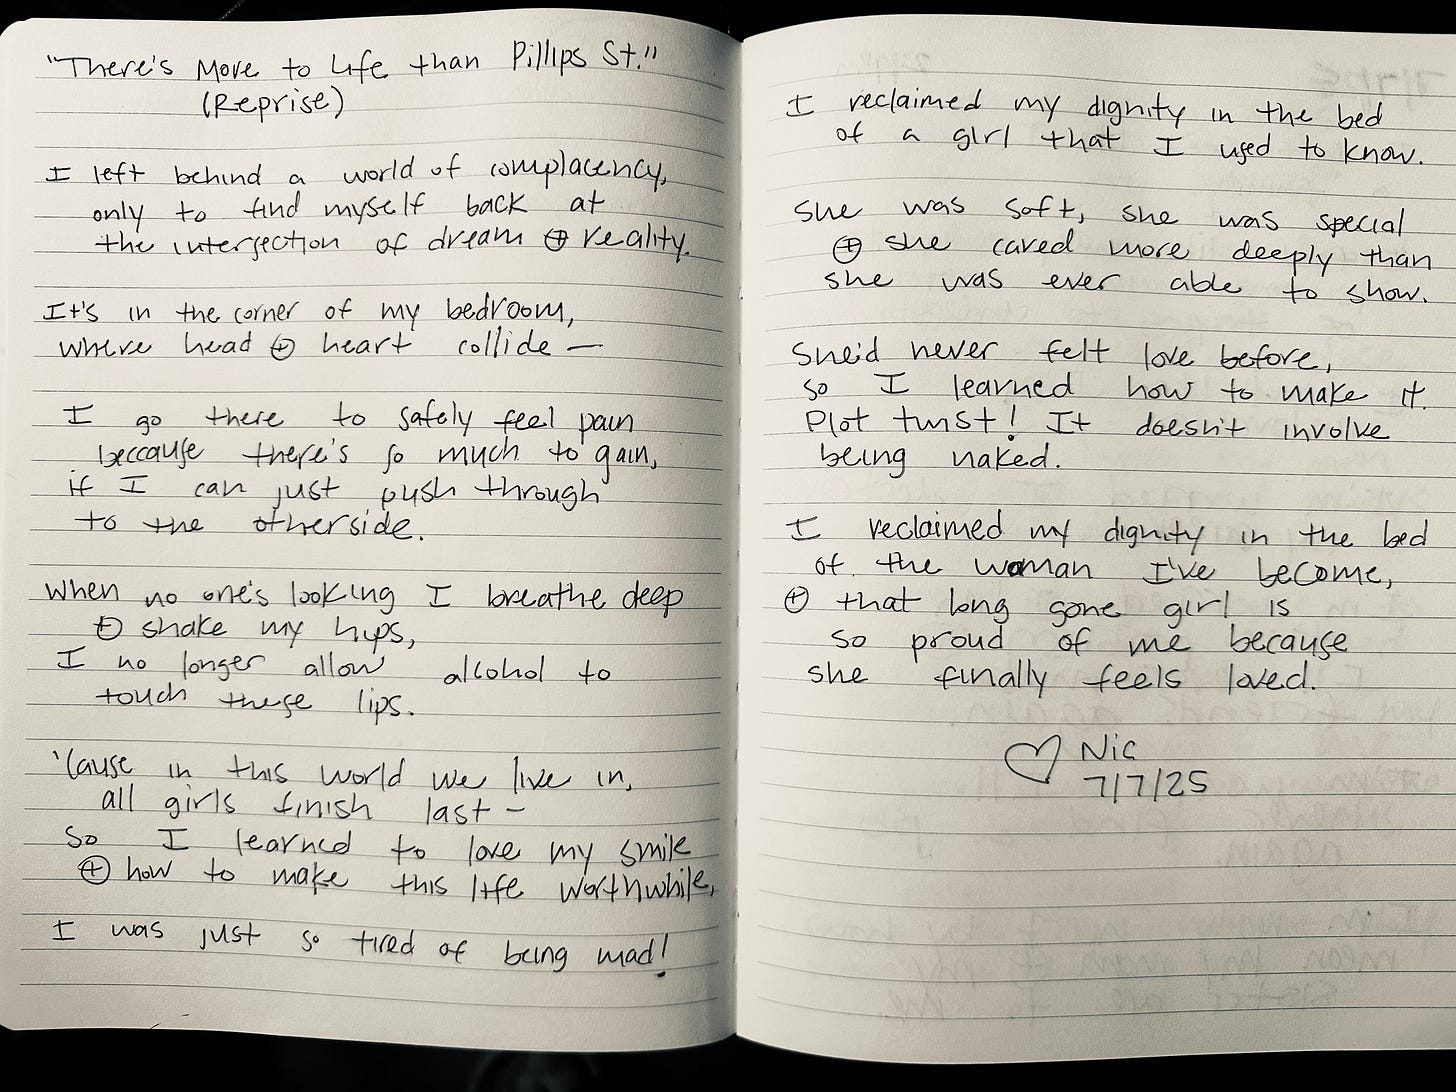 "There's More to Life than Pillips St."
(Reprise)
I left behind a world of complacency,
only to find myself back at
the intersection of dream ⊕ reality.
It's in the corner of my bedroom,
where head ⊕ heart collide —
I go there to safely feel pain
beccause there's so much to gain,
if I can just push through
to the otherside.
When no one's looking I breathe deep
⊕ shake my hips,
I no longer allow alcohol to
touch these lips.
'Cause in this world we live in,
all girls finish last –
So I learned to love my smile
⊕ how to make this life worthwhile,
I was just so tired of being mad!
I reclaimed my dignity in the bed
of a girl that I used to know.
She was soft, she was special
⊕ she cared more deeply than
she was ever able to show.
She'd never felt love before,
so I learned how to make it.
Plot twist! It doesn't involve
being naked.
I reclaimed my dignity in the bed
of the woman I've become,
⊕ that long gone girl is
so proud of me because
she finally feels loved.
♡ Nic
7/7/25